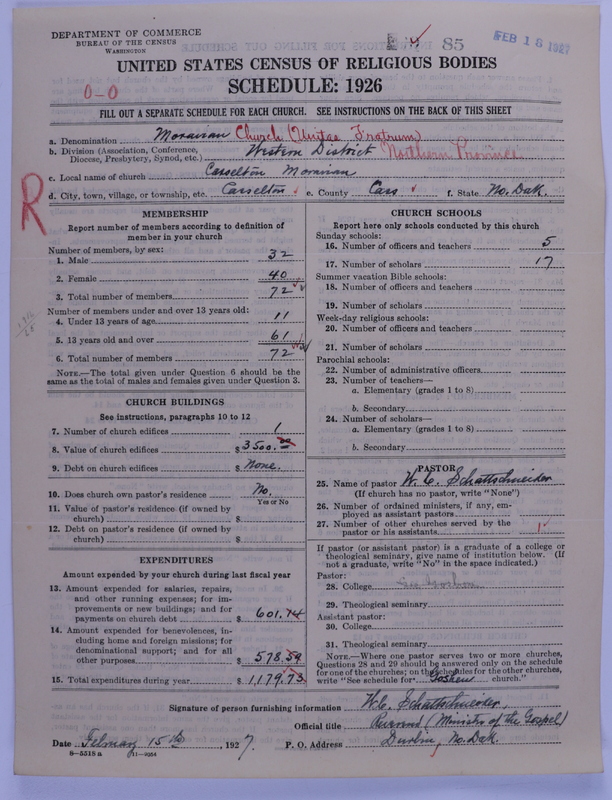 DEPARTMENT OF COMMERCE
BUREAU OF THE CENSUS
WASHINGTON
85
FEB 18 1927
UNITED STATES CENSUS OF RELIGIOUS BODIES
SCHEDULE: 1926
0-0
FILL OUT A SEPARATE SCHEDULE FOR EACH CHURCH. SEE INSTRUCTIONS ON THE BACK OF THIS SHEET
a. Denomination Moravian Church (Unitas Fratrum)
b. Division (Association, Conference, Diocese, Presbytery, Synod, etc.) Western District Northern Province
c. Local name of church Casselton Moravian
d. City, town, village, or township, etc. Casselton e. County Cass f. State No. Dak.
R
MEMBERSHIP
Report number of members according to definition of member in your church
Number of members, by sex:
1. Male 32
2. Female 40
3. Total number of members 72
Number of members under and over 13 years old:
4. Under 13 years of age 11
5. 13 years old and over 61
6. Total number of members 72
NOTE.—The total given under Question 6 should be the same as the total of males and females given under Question 3.
CHURCH BUILDINGS
See instructions, paragraphs 10 to 12
7. Number of church edifices 1
8. Value of church edifices $ 3500.00
9. Debt on church edifices $ None.
10. Does church own pastor's residence No.
Yes or No
11. Value of pastor's residence (if owned by church) $
12. Debt on pastor's residence (if owned by church) $
EXPENDITURES
Amount expended by your church during last fiscal year
13. Amount expended for salaries, repairs, and other running expenses; for improvements or new buildings; and for payments on church debt $ 601.14
14. Amount expended for benevolences, including home and foreign missions; for denominational support; and for all other purposes $ 578.59
15. Total expenditures during year $ 1,179.73
CHURCH SCHOOLS
Report here only schools conducted by this church
Sunday schools:
16. Number of officers and teachers 5
17. Number of scholars 17
Summer vacation Bible schools:
18. Number of officers and teachers
19. Number of scholars
Week-day religious schools:
20. Number of officers and teachers
21. Number of scholars
Parochial schools:
22. Number of administrative officers
23. Number of teachers—
a. Elementary (grades 1 to 8)
b. Secondary
24. Number of scholars—
a. Elementary (grades 1 to 8)
b. Secondary
PASTOR
25. Name of pastor W. C. Schattschneider
(If church has no pastor, write "None")
26. Number of ordained ministers, if any, employed as assistant pastors
27. Number of other churches served by the pastor or his assistants 1
If pastor (or assistant pastor) is a graduate of a college or theological seminary, give name of institution below. (If not a graduate, write "No" in the space indicated.)
Pastor:
28. College See Goshen
29. Theological seminary
Assistant pastor:
30. College
31. Theological seminary
NOTE.—Where one pastor serves two or more churches, Questions 28 and 29 should be answered only on the schedule for one of the churches; on the schedules for the other churches, write "See schedule for Goshen church."
Signature of person furnishing information W. C. Schattschneider,
Official title Reverend (Minister of the Gospel)
Date February 15th, 1927. P. O. Address Durbin, No. Dak.
8-5518 a 11-9054